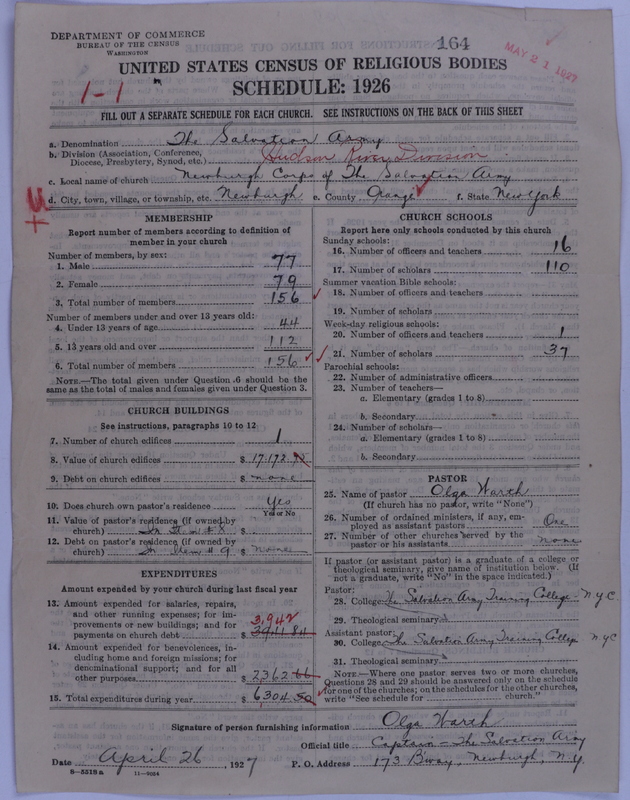 DEPARTMENT OF COMMERCE
BUREAU OF THE CENSUS
WASHINGTON
164
MAY 21 1927
UNITED STATES CENSUS OF RELIGIOUS BODIES
1-1
SCHEDULE: 1926
FILL OUT A SEPARATE SCHEDULE FOR EACH CHURCH. SEE INSTRUCTIONS ON THE BACK OF THIS SHEET
a. Denomination The Salvation Army
b. Division (Association, Conference,
Diocese, Presbytery, Synod, etc.) Hudson River Division
c. Local name of church Newburgh Corps of The Salvation Army
d. City, town, village, or township, etc. Newburgh e. County Orange f. State New York
MEMBERSHIP
Report number of members according to definition of
member in your church
Number of members, by sex:
1. Male 77
2. Female 79
3. Total number of members 156
Number of members under and over 13 years old:
4. Under 13 years of age 44
5. 13 years old and over 112
6. Total number of members 156
NOTE.—The total given under Question 6 should be
the same as the total of males and females given under Question 3.
CHURCH BUILDINGS
See instructions, paragraphs 10 to 12
7. Number of church edifices 1
8. Value of church edifices $ 17,172
9. Debt on church edifices $ none
10. Does church own pastor's residence Yes
Yes or No
11. Value of pastor's residence (if owned by
church) In Item # 8 $
12. Debt on pastor's residence (if owned by
church) In Item # 9 $ none
EXPENDITURES
Amount expended by your church during last fiscal year
13. Amount expended for salaries, repairs,
and other running expenses; for im-
provements or new buildings; and for
payments on church debt $ 3941.84
3,942
14. Amount expended for benevolences, in-
cluding home and foreign missions; for
denominational support; and for all
other purposes $ 2362.66
15. Total expenditures during year $ 6304.50
CHURCH SCHOOLS
Report here only schools conducted by this church
Sunday schools:
16. Number of officers and teachers 16
17. Number of scholars 110
Summer vacation Bible schools:
18. Number of officers and teachers
19. Number of scholars
Week-day religious schools:
20. Number of officers and teachers 1
21. Number of scholars 37
Parochial schools:
22. Number of administrative officers
23. Number of teachers—
a. Elementary (grades 1 to 8)
b. Secondary
24. Number of scholars—
a. Elementary (grades 1 to 8)
b. Secondary
PASTOR
25. Name of pastor Olga Warth
(If church has no pastor, write "None")
26. Number of ordained ministers, if any, em-
ployed as assistant pastors One
27. Number of other churches served by the
pastor or his assistants none
If pastor (or assistant pastor) is a graduate of a college or
theological seminary, give name of institution below. (If
not a graduate, write "No" in the space indicated.)
Pastor:
28. College The Salvation Army Training College N.Y.C
29. Theological seminary
Assistant pastor:
30. College The Salvation Army Training College N.Y.C
31. Theological seminary
NOTE.—Where one pastor serves two or more churches,
Questions 28 and 29 should be answered only on the schedule
for one of the churches; on the schedules for the other churches,
write "See schedule for church."
Signature of person furnishing information Olga Warth
Official title Captain - The Salvation Army
Date April 26, 1927 P. O. Address 173 Bway, Newburgh, N.Y.
8-5518a 11-9054